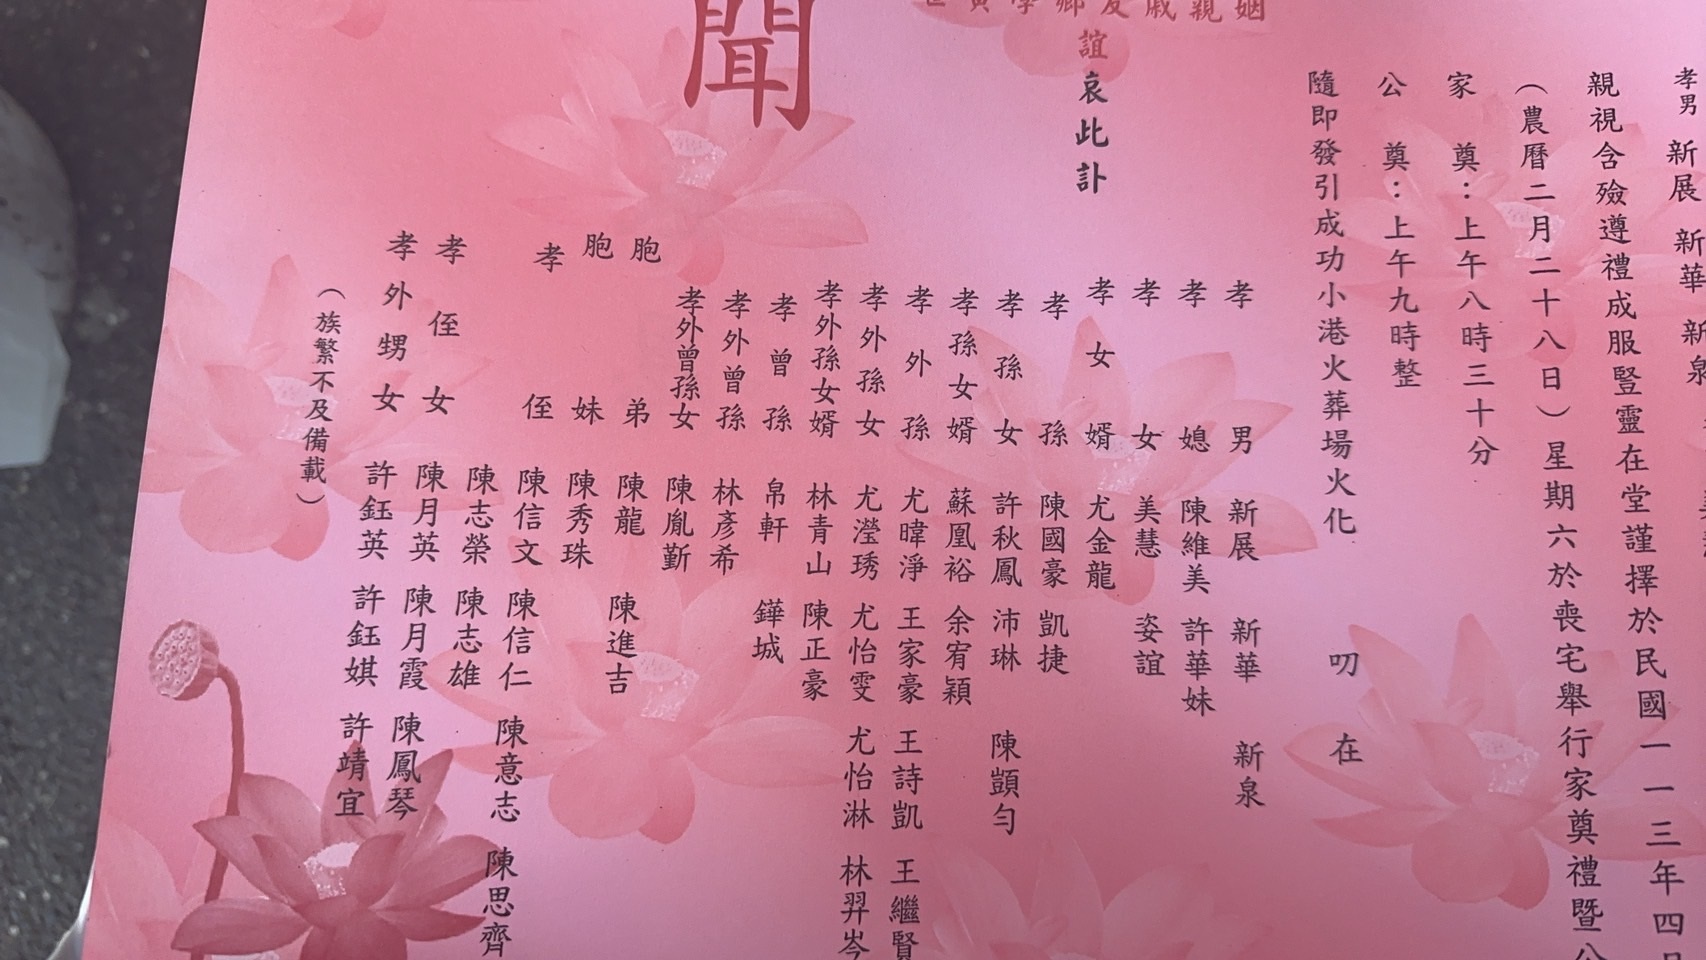 孝男 新展 新華 新泉
親視含殮遵禮成服豎靈在堂謹擇於民國一一三年四月
（農曆二月二十八日）星期六於喪宅舉行家奠禮暨公
家 奠：上午八時三十分
公 奠：上午九時整
隨即發引成功小港火葬場火化 叨 在
姻親戚友鄉學寅世
誼哀此訃
聞
孝男 新展 新華 新泉
孝媳 陳維美 許華妹
孝女 美慧 姿誼
孝女婿 尤金龍
孝孫 陳國豪 凱捷
孝孫女 許秋鳳 沛琳 陳顗勻
孝孫女婿 蘇凰裕 余宥穎
孝外孫 尤暐淨 王家豪 王詩凱 王繼賢
孝外孫女 尤瀅琇 尤怡雯 尤怡淋 林羿岑
孝外孫女婿 林青山 陳正豪
孝曾孫 帛軒 鏵城
孝外曾孫 林彥希
孝外曾孫女 陳胤蓳
胞弟 陳龍 陳進吉
胞妹 陳秀珠
孝侄 陳信文 陳信仁 陳意志 陳思齊
陳志榮 陳志雄
孝侄女 陳月英 陳月霞 陳鳳琴
孝外甥女 許鈺英 許鈺娸 許靖宜
（族繁不及備載）